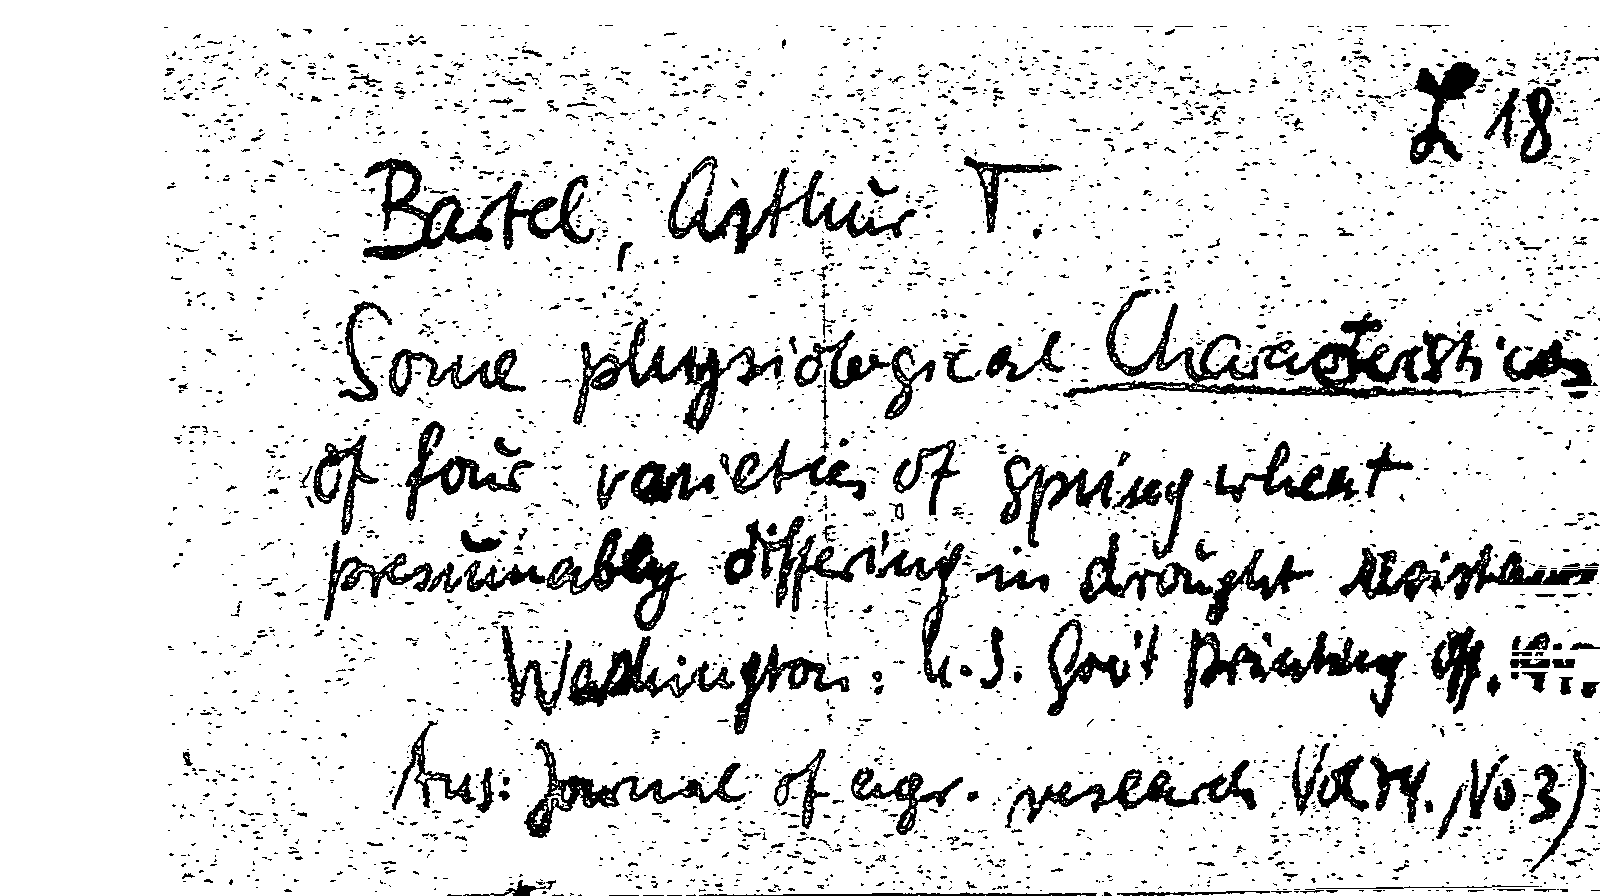 L 18
Bartel, Arthur T.
Some physiological Characteristics
of four varieties of spring wheat
presumably differing in drought
Washington: U.S. Gov't Printing Off.
Aus: Journal of agr. research Vol 74., No 3)